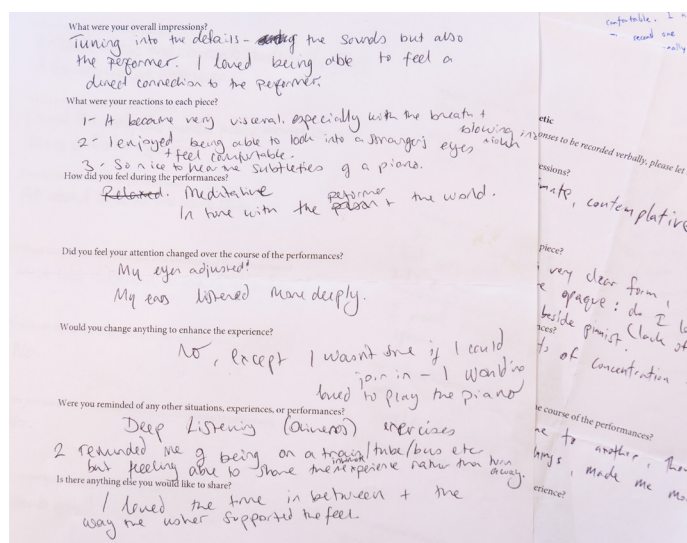 What were your overall impressions?
Tuning into the details - the sounds but also
the performer. I loved being able to feel a
direct connection to the performer.
What were your reactions to each piece?
1- It became very visceral, especially with the breath +
blowing
2- I enjoyed being able to look into a stranger's eyes
+ feel comfortable.
3 - So nice to hear the subtleties of a piano.
How did you feel during the performances?
Relaxed. Meditative
In tune with the performer + the world.
Did you feel your attention changed over the course of the performances?
My eyes adjusted!
My ears listened more deeply.
Would you change anything to enhance the experience?
No, except I wasn't sure if I could
join in - I would've
loved to play the piano
Were you reminded of any other situations, experiences, or performances?
Deep Listening (Oliveros) exercises
2 reminded me of being on a train/tube/bus etc
but feeling able to share the experience rather than turn
away.
Is there anything else you would like to share?
I loved the time in between + the
way the usher supported the feel
comfortable. I
second one
etic
onses to be recorded verbally, please let
essions?
contemplative
piece?
very clear form,
opaque: do I
beside pianist. (lack of
nces?
of concentration
e course of the performances?
to another,
made me
erience?